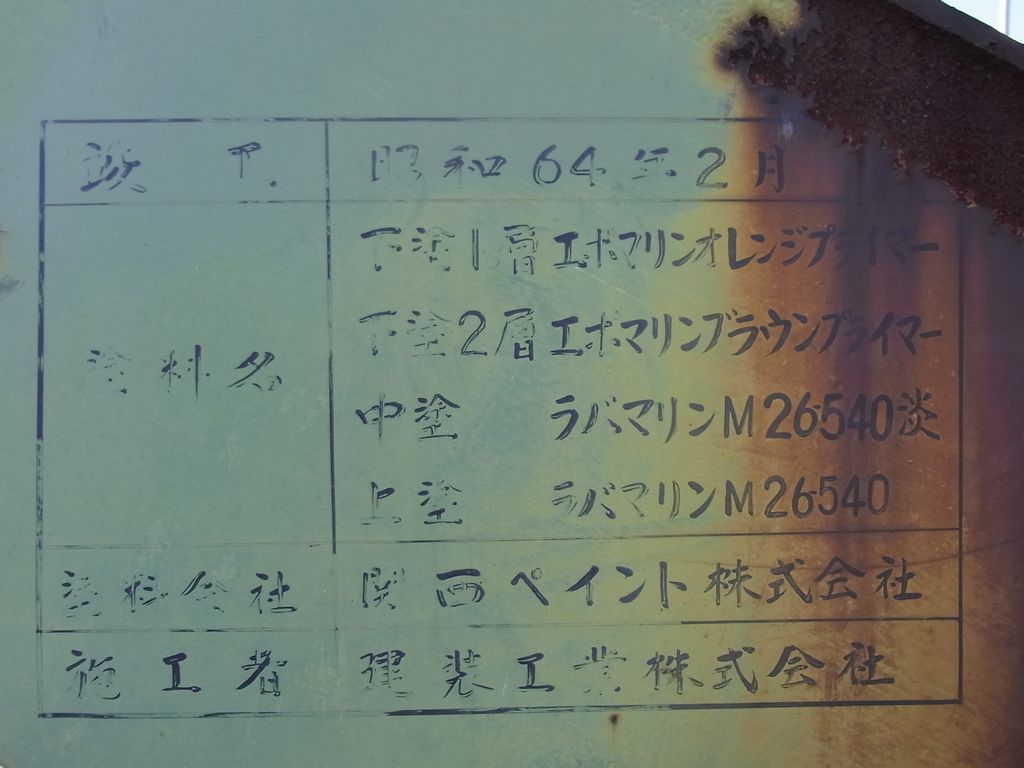 竣工 昭和64年2月
下塗1層 エポマリンオレンジプライマー
下塗2層 エポマリンブラウンプライマー
塗料名
中塗 ラバマリンM26-540淡
上塗 ラバマリンM26-540
塗料会社 関西ペイント株式会社
施工者 建装工業株式会社